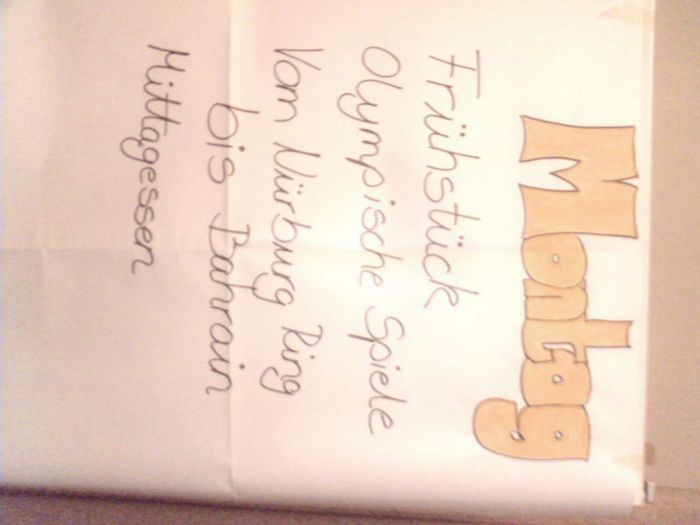 Montag
Frühstück
Olympische Spiele
Vom Nürburg Ring
bis Bahrain
Mittagessen